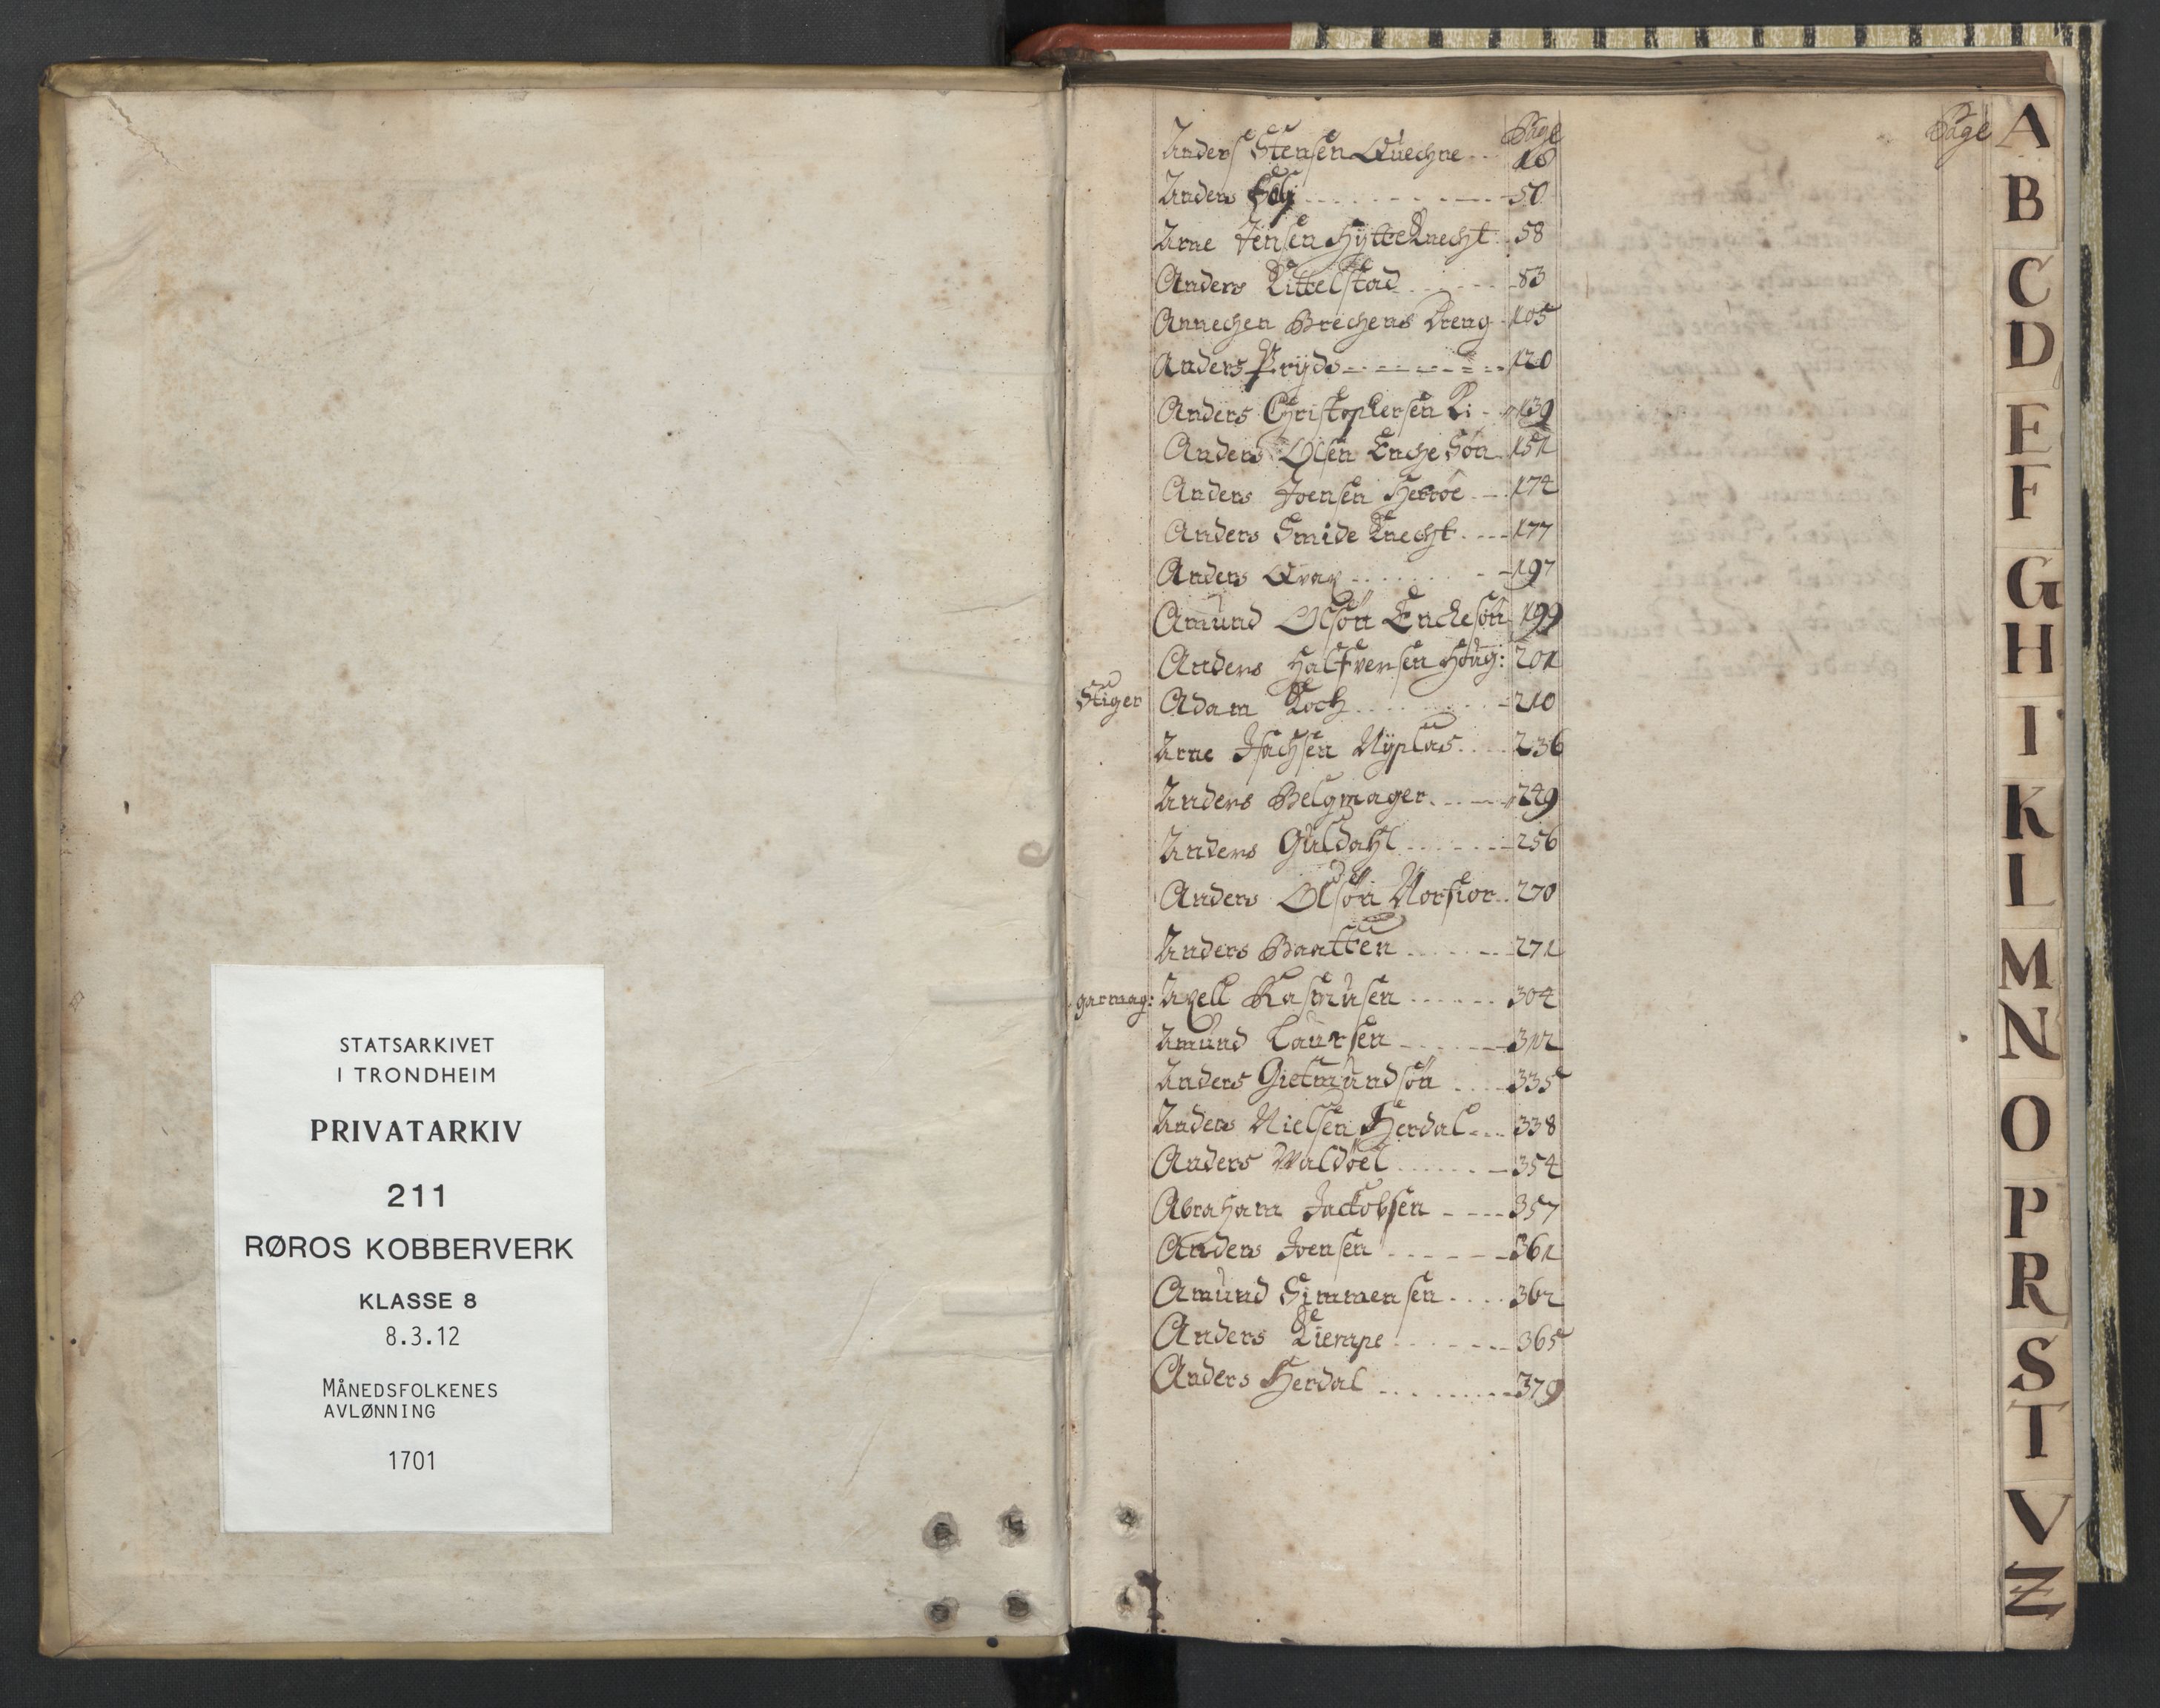 STATSARKIVET
I TRONDHEIM
PRIVATARKIV
211
RØROS KOBBERVERK
KLASSE 8
8.3.12
MÅNEDSFOLKENES
AVLØNNING
1701
Page
Anders Stensen Quechne 18
Anders 50
Arne Jensen HytteKnecht 58
Anders Kittelstad 83
Annechen Brechens Dreng 105
Anders Pryds 120
Anders Christophersen Ki 139
Anders Olsen Encke Sön 151
Anders Joensen 174
Anders Smide Knecht 177
Anders 197
Amund Olsön Enckesön 199
Anders Halfversen Houg: 201
Stiger Adam Koch 210
Arne Isachsen Nÿplas 236
Anders Belgmager 249
Anders Guldahl 256
Anders Olsön 270
Anders Baatten 271
garmag: Axell Rasmusen 304
Amund Laursen 312
Anders Gietmundsön 335
Anders Nielsen Herdal 338
Anders Waldöel 354
Abraham Jackobsen 357
Anders Joensen 361
Amund Simmensen 362
Anders Kiempe 365
Anders Herdal 379
Page
A
B
C
D
E
F
G
H
I
K
L
M
N
O
P
R
S
T
V
Z